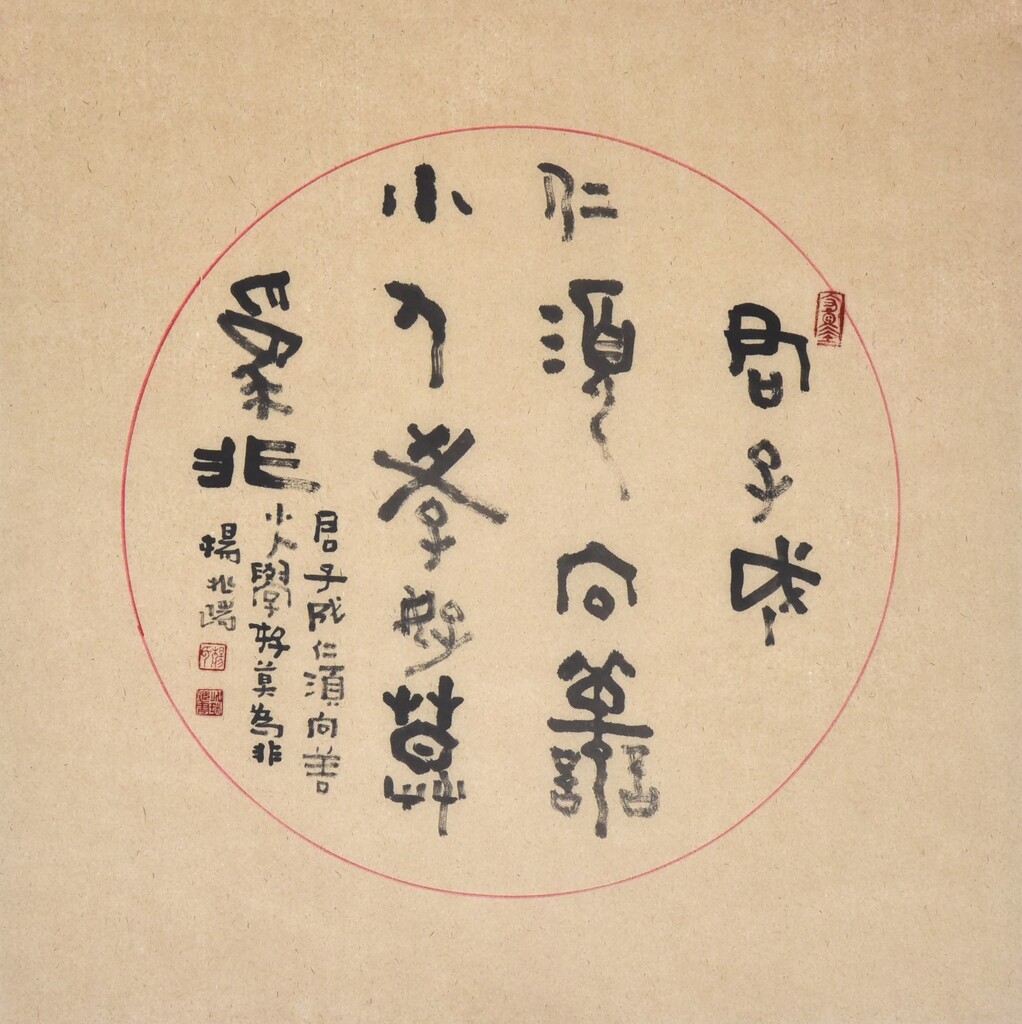 君子成
仁須向善
小人學好莫
爲非
君子成仁須向善
小人學好莫為非
楊兆瑞